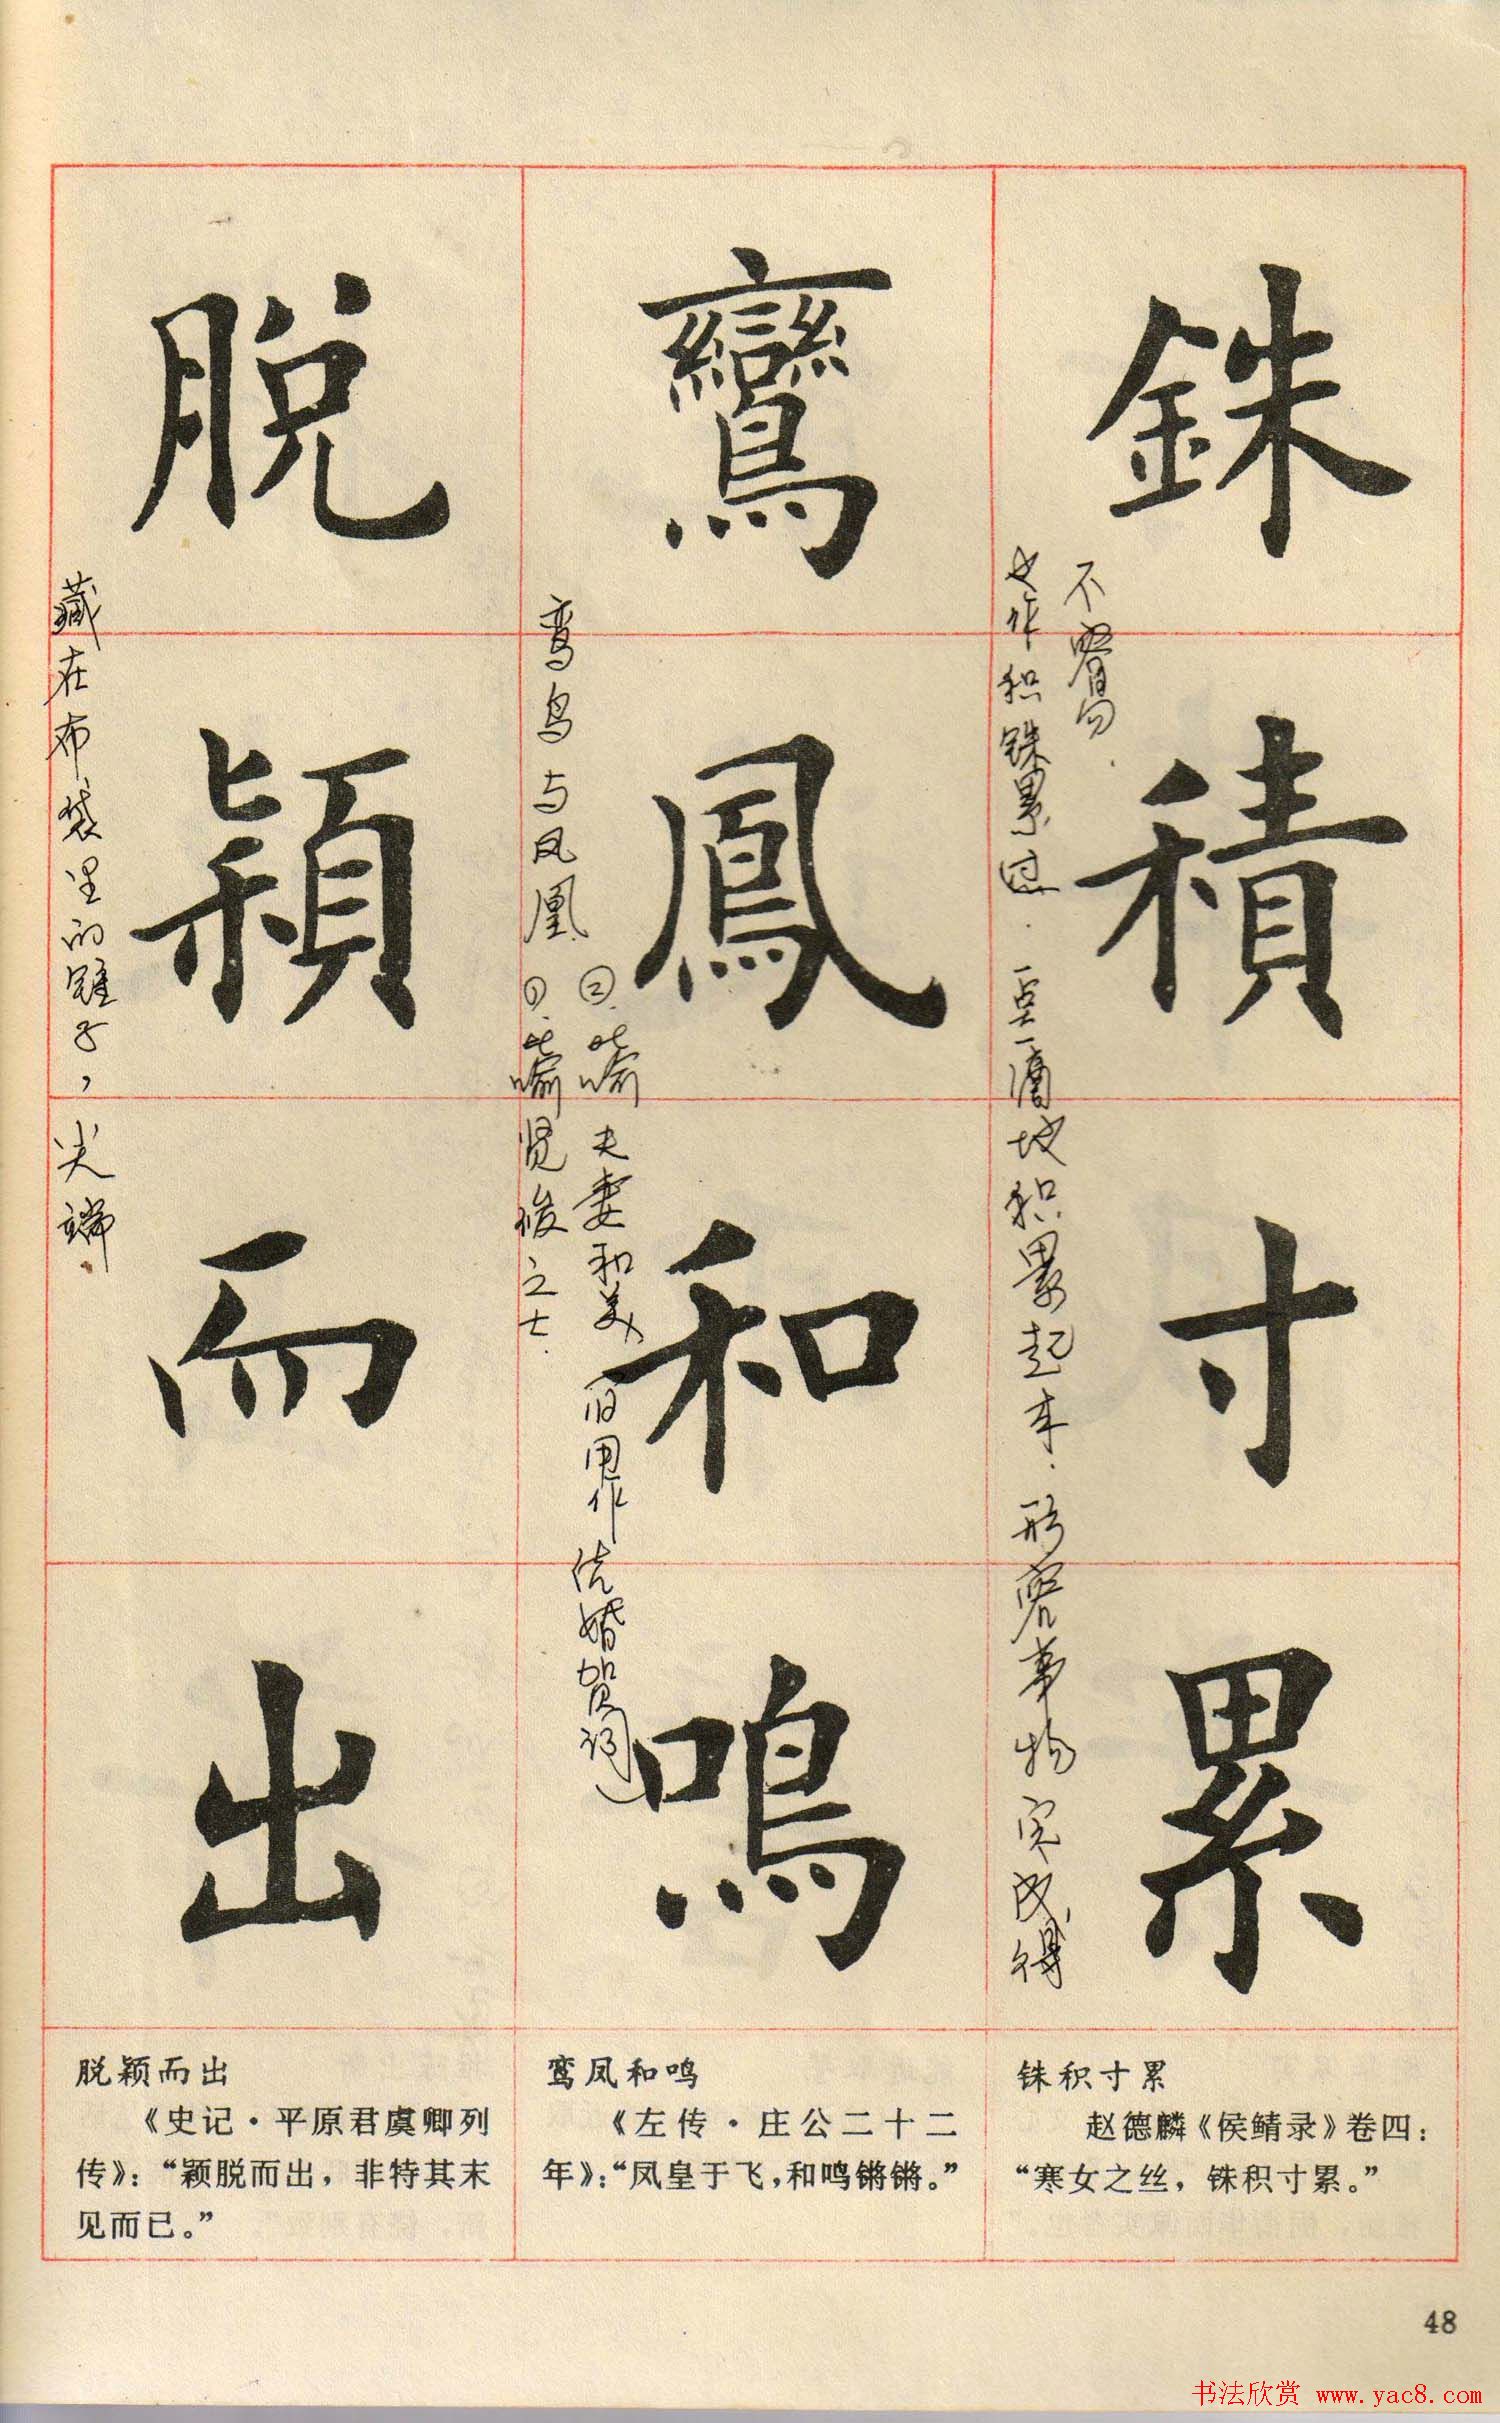 銖積寸累
鸞鳳和鳴
脱穎而出
也作积铢累寸.一点一滴地积累起来.形容事物完成得
不容易.
鸾鸟与凤凰
①.比喻贤俊之士.
②.比喻夫妻和美(旧用作结婚贺词)
藏在布袋里的锥子，尖端.
脱颖而出
《史记·平原君虞卿列
传》：“颖脱而出，非特其末
见而已。”
鸾凤和鸣
《左传·庄公二十二
年》：“凤皇于飞，和鸣锵锵。”
铢积寸累
赵德麟《侯鲭录》卷四：
“寒女之丝，铢积寸累。”
48
书法欣赏 www.yac8.com